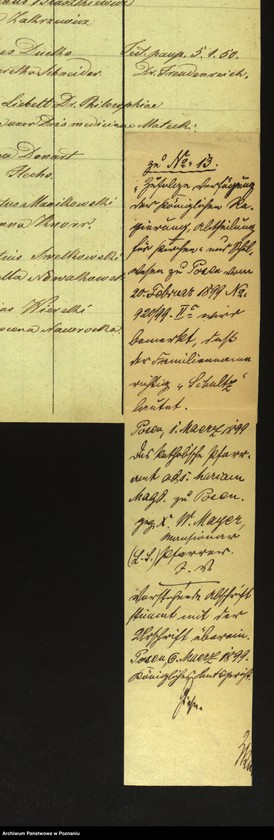 Zakrzewicz
Duczko
Test. paup. 5.1.60.
Schneider.
Dr. Freudenreich.
Liebelt Dr. Philosophiae
medicinae Matecki.
Donart
Hecho.
Manikowski
Anna Knorr.
Smelkowski
Nowakowsk
Wierzki
Nawrocka
zu No. 13.
„Zufolge Verfügung
der Königlichen Re-
gierung, Abtheilung
für Kirchen- und Schul-
wesen zu Posen vom
20. Februar 1899 No.
920/99. IIa wird
bemerkt, daß
der Familienname
richtig „Schultz"
lautet.
Posen, 1. Maerz 1899
Das katholische Pfarr-
amt ads. Mariam
Magd. zu Posen.
gez. X. W. Mayer,
Mansionar
(L.S.) Pfarrer
I. V.
Vorstehende Abschrift
stimmt mit der
Urschrift überein.
Posen, 6. Maerz 1899.
Königliches Amtsgericht.
Archiwum Państwowe w Poznaniu